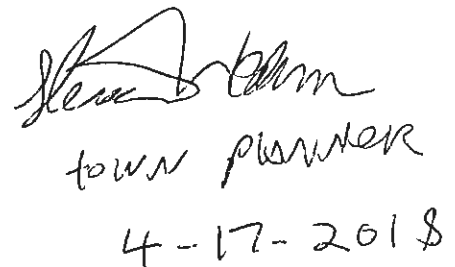 town planner
4-17-2018